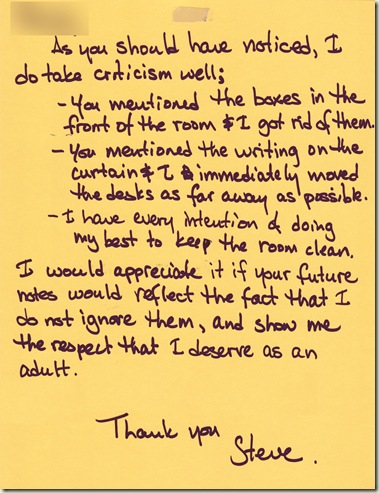 As you should have noticed, I
do take criticism well;
- You mentioned the boxes in the
front of the room & I got rid of them.
- You mentioned the writing on the
curtain & I immediately moved
the desks as far away as possible.
- I have every intention of doing
my best to keep the room clean.
I would appreciate it if your future
notes would reflect the fact that I
do not ignore them, and show me
the respect that I deserve as an
adult.
Thank you
Steve.